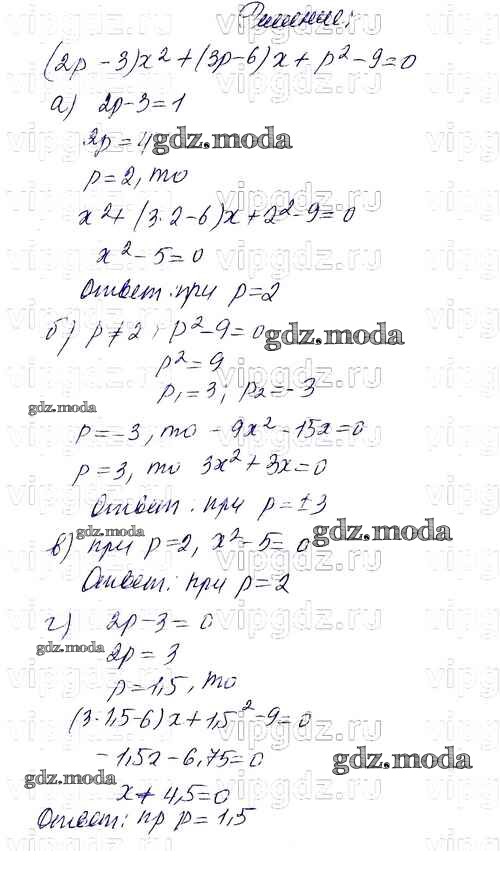 Решение:
(2p-3)x²+(3p-6)x+p²-9=0
а) 2p-3=1
2p=4
gdz.moda
p=2, то
x²+(3·2-6)x+2²-9=0
x²-5=0
Ответ: при p=2
б) p≠2, p²-9=0
gdz.moda
p²=9
p₁=3; p₂=-3
gdz.moda
p=-3, то -9x²-15x=0
p=3, то 3x²+3x=0
Ответ: при p=±3
gdz.moda
в) при p=2, x²-5=0
gdz.moda
Ответ: при p=2
г) 2p-3=0
gdz.moda
2p=3
p=1,5, то
(3·1,5-6)x+1,5²-9=0
-1,5x-6,75=0
gdz.moda
gdz.moda
x+4,5=0
Ответ: пр p=1,5
gdz.moda
vipgdz.ru